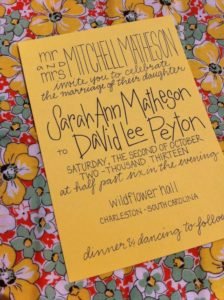 mr. and mrs. MITCHELL MATHESON
invite you to celebrate
the marriage of their daughter
Sarah Ann Matheson
TO David Lee Peyton
SATURDAY, THE SECOND OF OCTOBER
TWO-THOUSAND THIRTEEN
at half past six in the evening
wildflower hall
CHARLESTON - SOUTH CAROLINA
dinner & dancing to follow